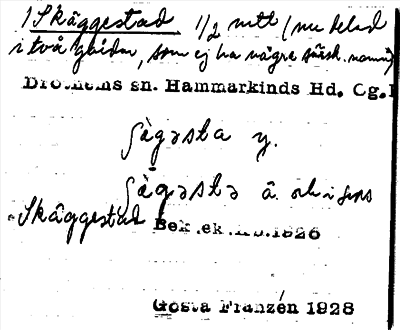 1 Skäggestad 1/2 mtl (nu delad
i två gårdar, som ej ha några särsk. namn)
Drothems sn. Hammarkinds Hd. Ög.
ʃàgəsta y.
ʃàgəstə ä. och i grns
Skäggestad Bek.ek. 1826
Gösta Franzén 1928